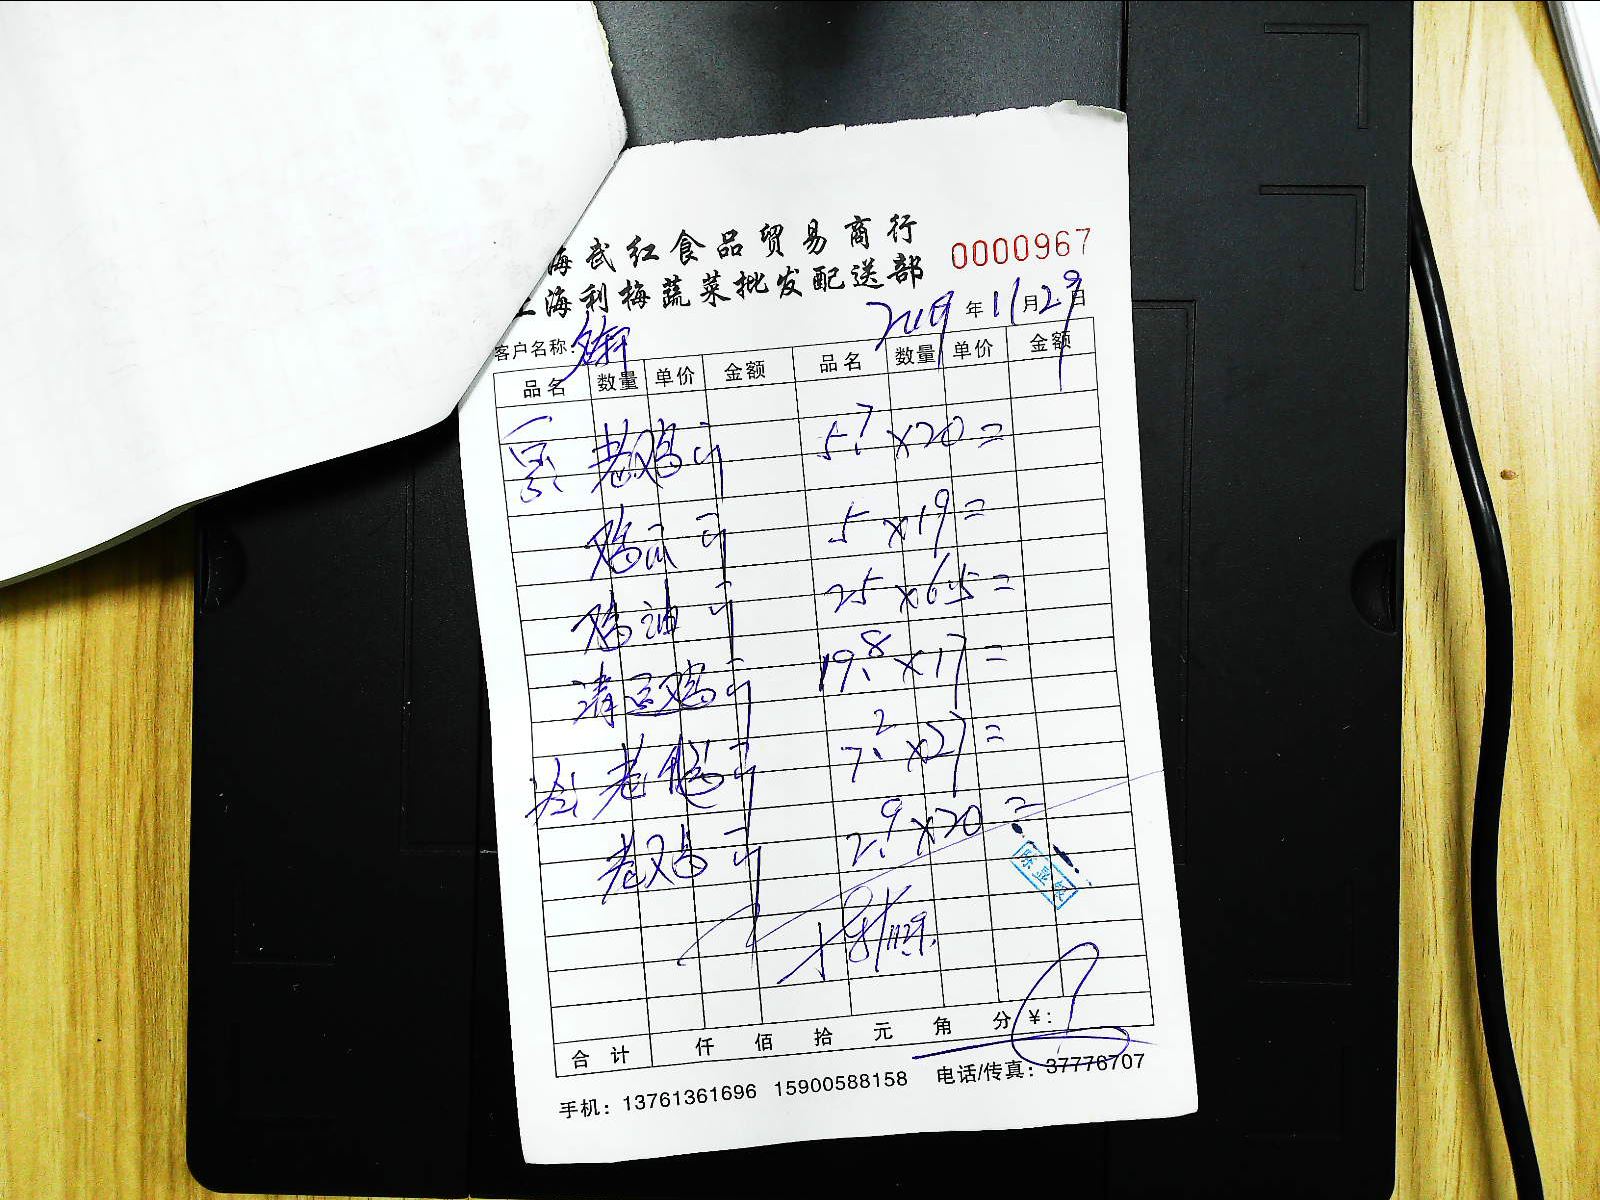 海武红食品贸易商行
上海利梅蔬菜批发配送部
0000967
2019年11月29日
客户名称:
品名 数量 单价 金额 品名 数量 单价 金额
老鸡 5.7×20=
鸡爪 5×19=
鸡油 25×6.5=
清远鸡 19.8×17=
老鸭 7.2×27=
老鸡 2.9×20=
合计 仟 佰 拾 元 角 分 ¥:
手机: 13761361696 15900588158 电话/传真: 37776707